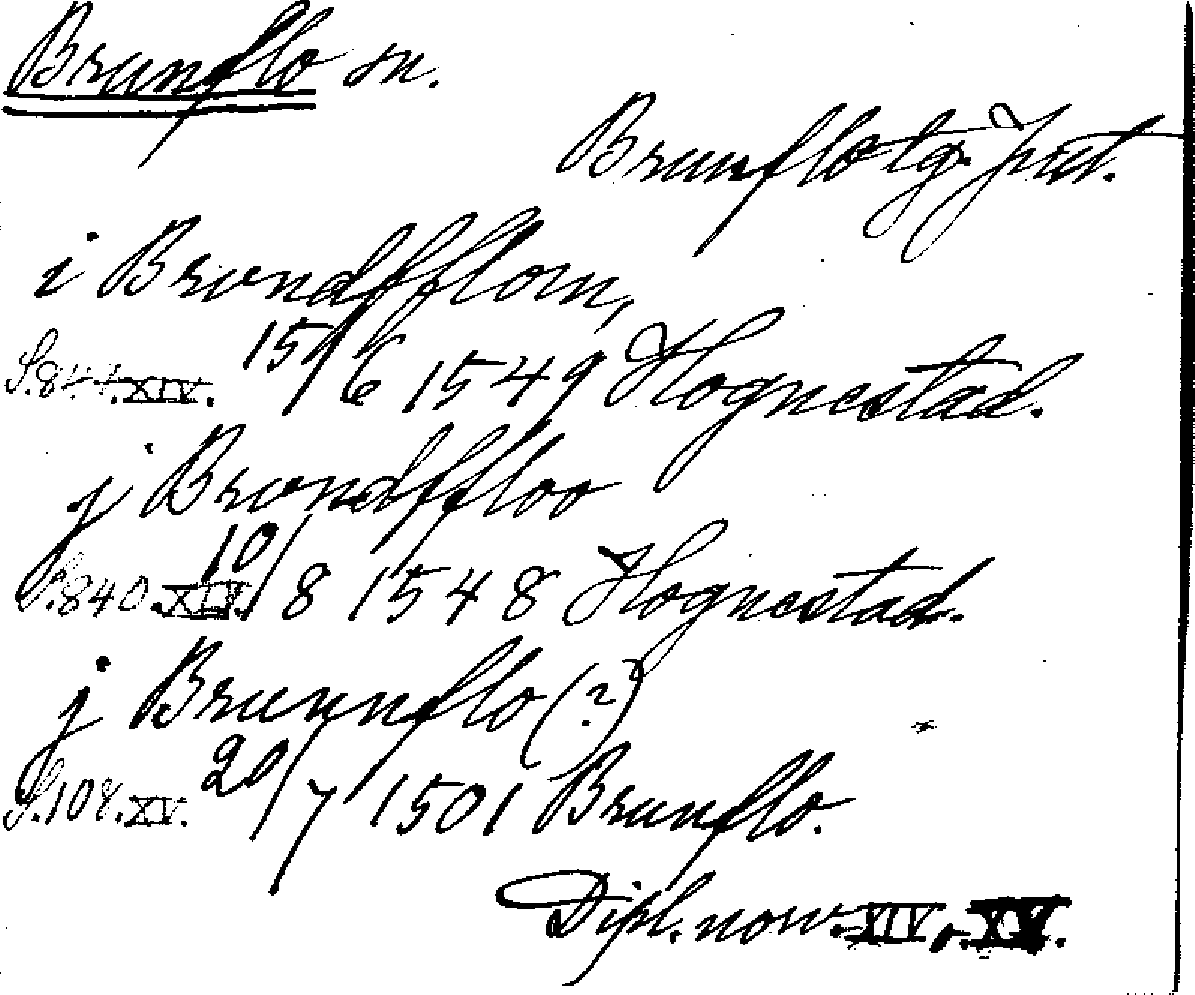 Brunflo sn.
Brunflo tg. Jtl.
i Brundfflom,
S. 844. XIV. 15/6 1549 Hognestad.
j Brundffloo
S. 840. XIV. 10/8 1548 Hognestad.
j Brunnflo (?)
S. 108. XV. 20/7 1501 Brunflo.
Dipl. norv. XIV, o. XV.